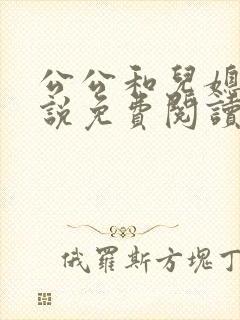 公公和兒媳
說免費閱讀
俄羅斯方塊丁